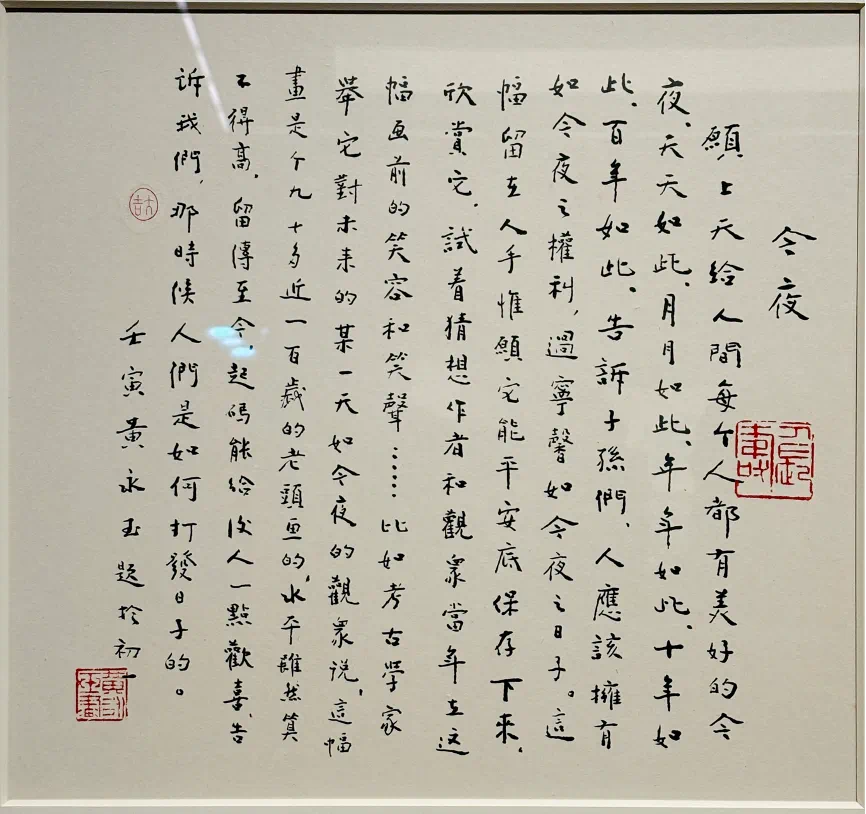 今夜
願上天給人間每个人都有美好的今
夜、天天如此、月月如此、年年如此、十年如
此、百年如此、告訴子孫們、人應該擁有
如今夜之權利，過寧馨如今夜之日子。這
幅留在人手惟願它能平安底保存下來、
欣賞它、試着猜想作者和觀衆當年在这
幅画前的笑容和笑聲……比如考古學家
舉它對未来的某一天如今夜的觀衆说，這幅
畫是个九十多近一百歲的老頭画的，水平雖然算
不得高、留傳至今、起碼能給後人一點歡喜、告
訴我們，那時候人們是如何打發日子的。
壬寅黃永玉題於初一